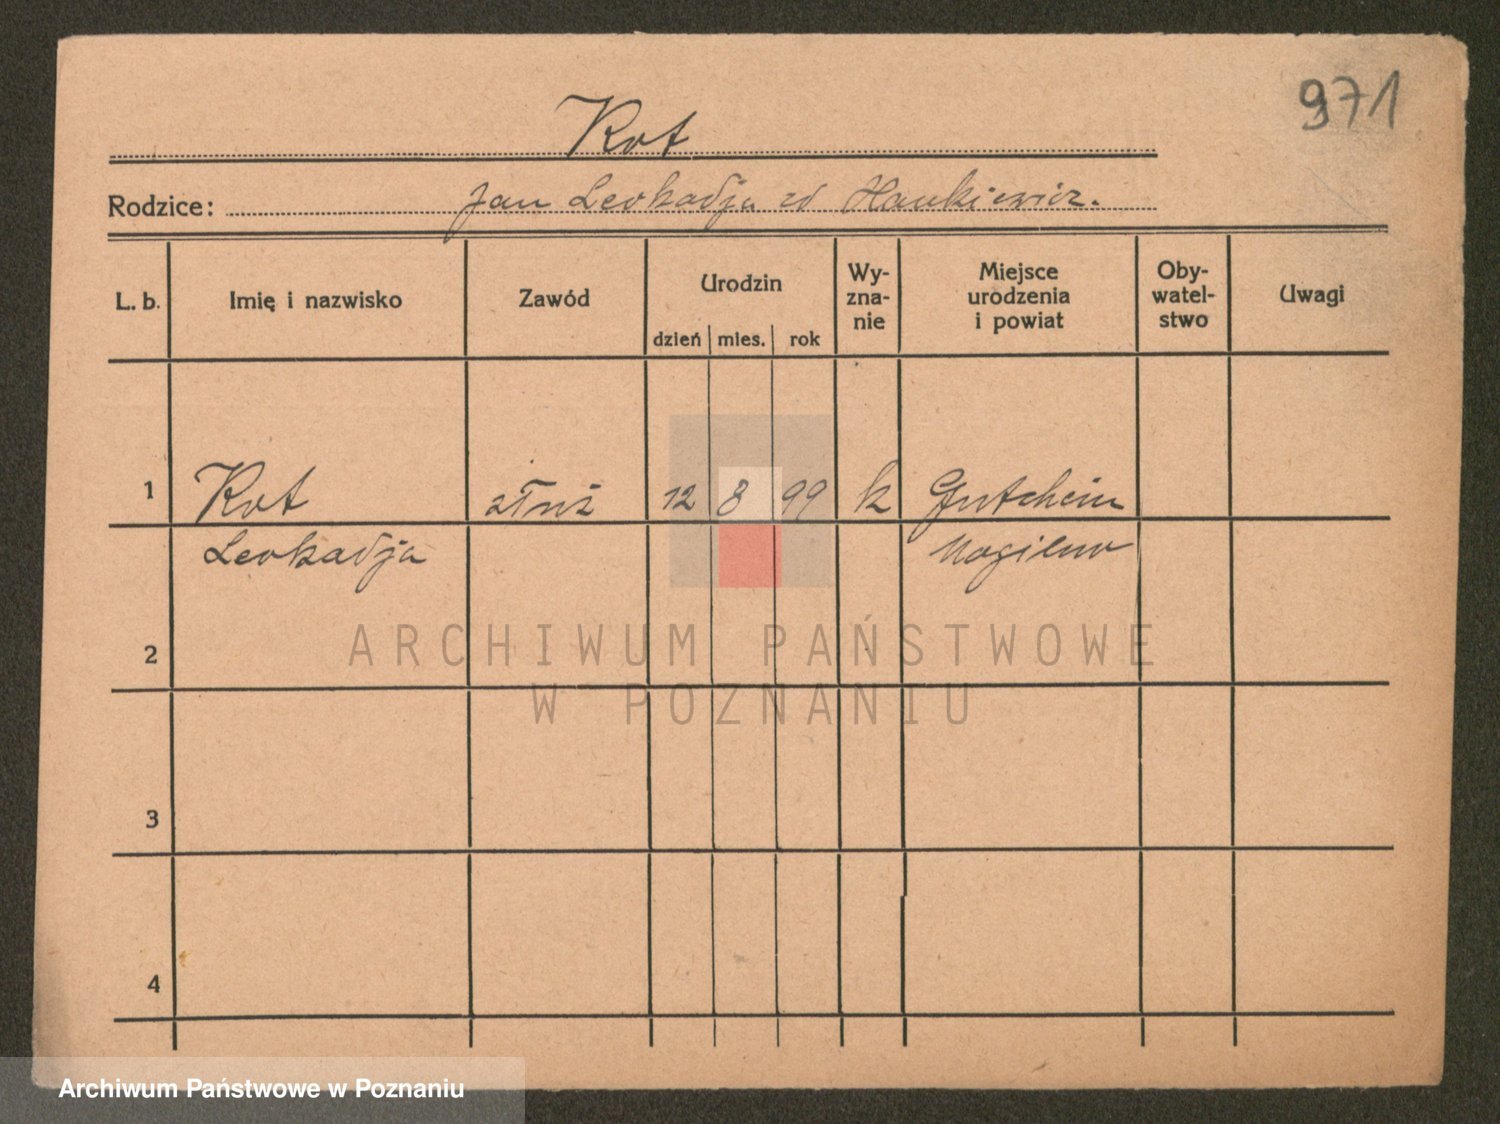 971
Kot
Rodzice: Jan Leokadja zd Hankiewicz.
L. b. Imię i nazwisko Zawód Urodzin dzień mies. rok Wy-zna-nie Miejsce urodzenia i powiat Oby-watel-stwo Uwagi
1 Kot służ 12 8 99 k Gutchein
Leokadja Mogilno
2
3
4
ARCHIWUM PAŃSTWOWE
W POZNANIU
Archiwum Państwowe w Poznaniu